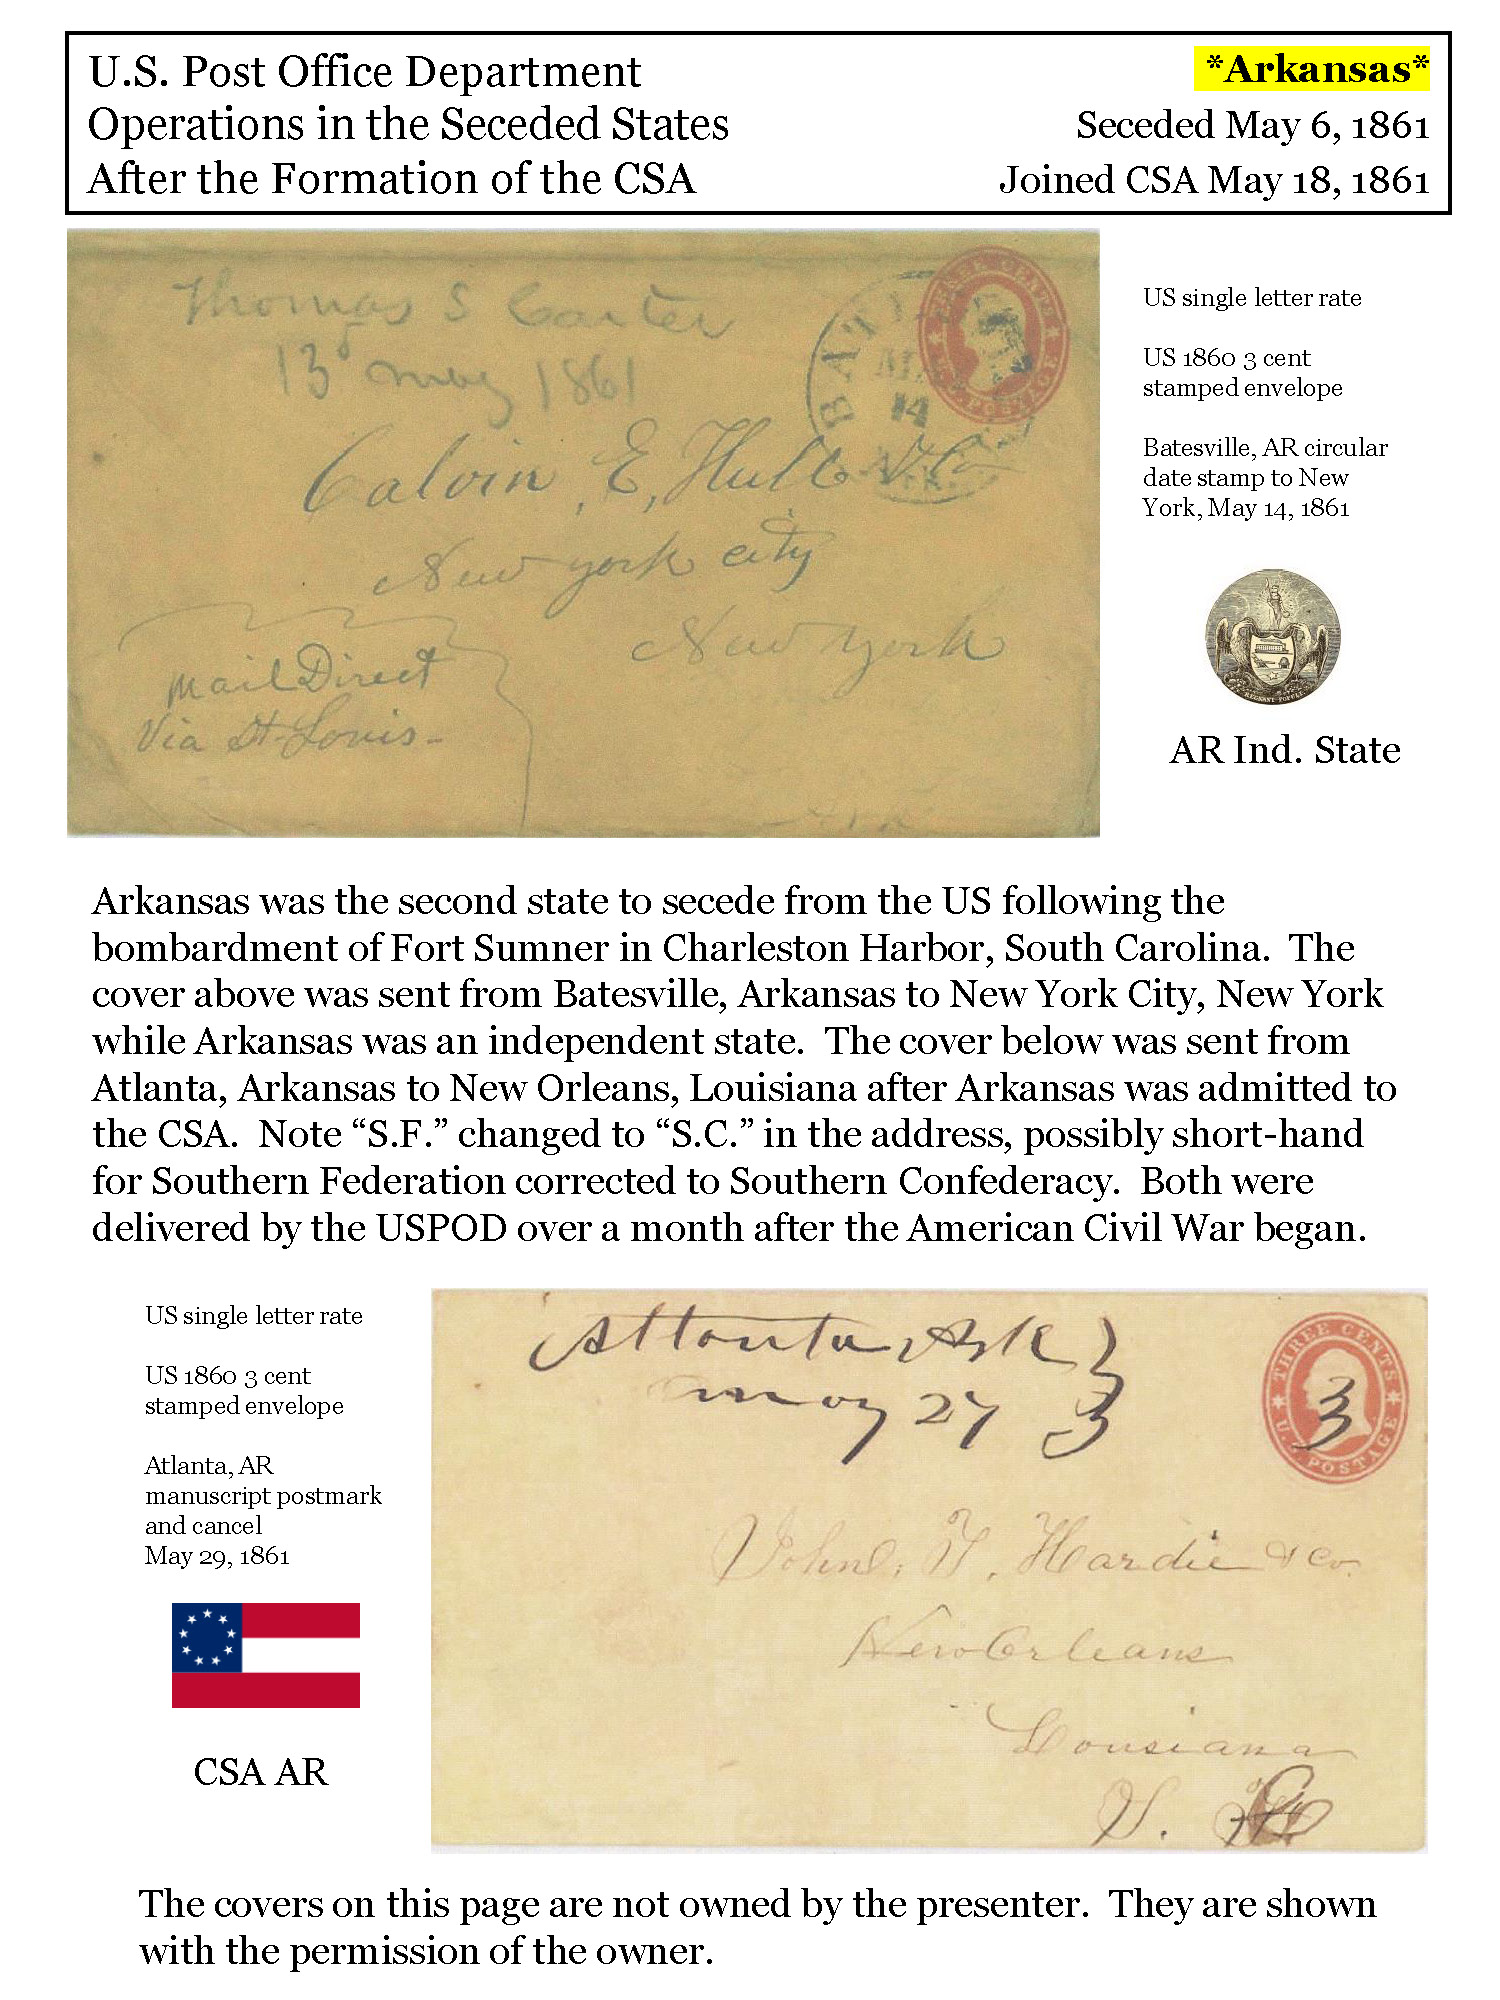 U.S. Post Office Department
Operations in the Seceded States
After the Formation of the CSA
*Arkansas*
Seceded May 6, 1861
Joined CSA May 18, 1861
Thomas S Carter
13 may 1861
THREE CENTS
U.S. POSTAGE
BAT
MA
14
Calvin, E, Hull & Co
New york city
New york
Mail Direct
Via St. Louis-
US single letter rate
US 1860 3 cent
stamped envelope
Batesville, AR circular
date stamp to New
York, May 14, 1861
REGNANT POPULI
AR Ind. State
Arkansas was the second state to secede from the US following the
bombardment of Fort Sumner in Charleston Harbor, South Carolina. The
cover above was sent from Batesville, Arkansas to New York City, New York
while Arkansas was an independent state. The cover below was sent from
Atlanta, Arkansas to New Orleans, Louisiana after Arkansas was admitted to
the CSA. Note “S.F.” changed to “S.C.” in the address, possibly short-hand
for Southern Federation corrected to Southern Confederacy. Both were
delivered by the USPOD over a month after the American Civil War began.
US single letter rate
US 1860 3 cent
stamped envelope
Atlanta, AR
manuscript postmark
and cancel
May 29, 1861
CSA AR
Atlanta Ark
may 27 3
THREE CENTS
3
U.S. POSTAGE
John, T. Hardie & Co.
New Orleans
Louisiana
S.
The covers on this page are not owned by the presenter. They are shown
with the permission of the owner.